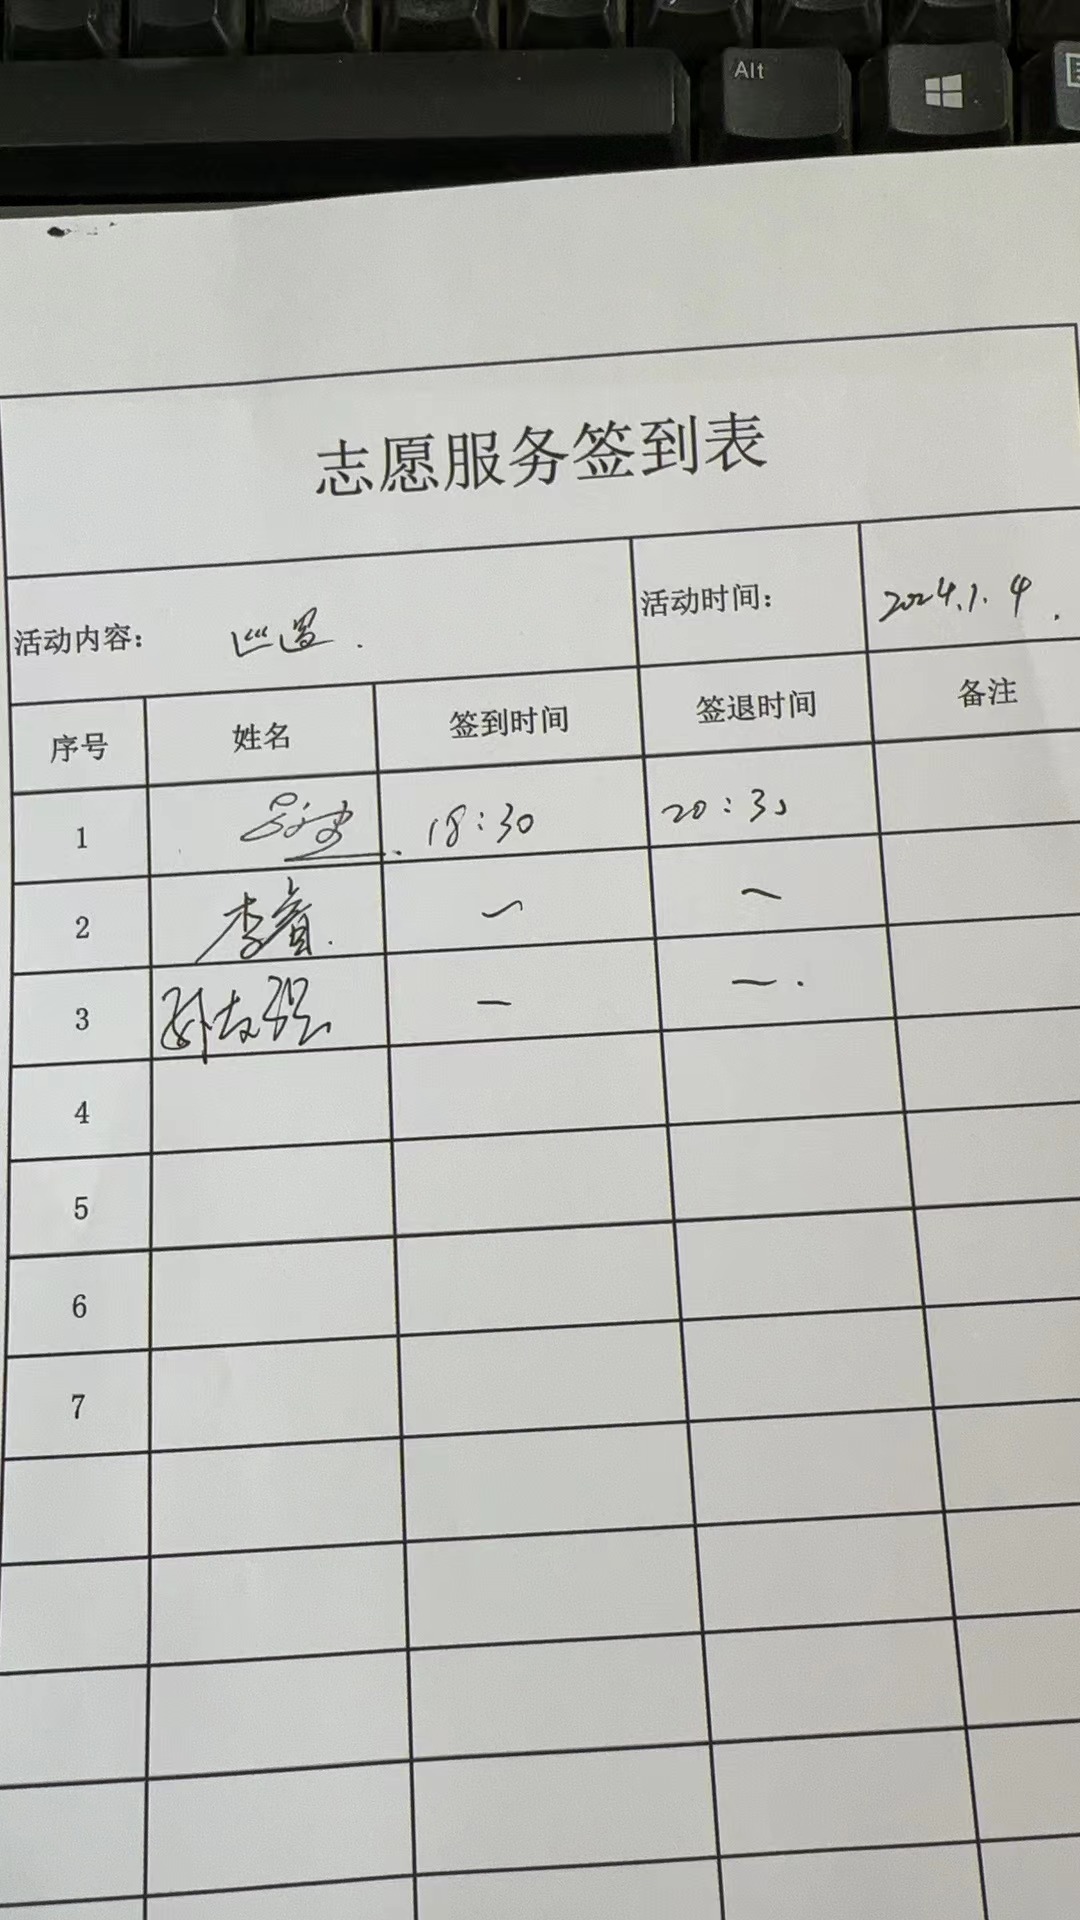 Alt
志愿服务签到表
活动内容: 巡逻. 活动时间: 2024.1.4.
序号 姓名 签到时间 签退时间 备注
1 18:30 20:30
2 李 — —
3 孙友强 — —.
4
5
6
7